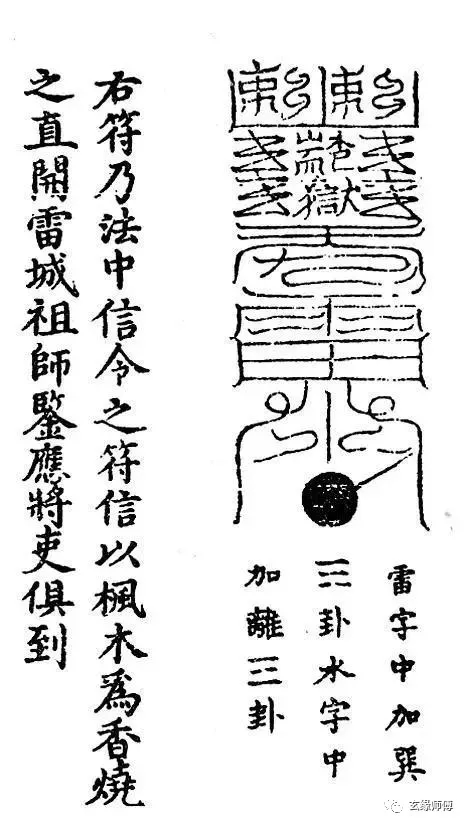 雷字中加巽
☴卦水字中
加離☲卦
右符乃法中信令之符信以楓木為香燒
之直開雷城祖師鑒應將吏俱到
玄缘师傅